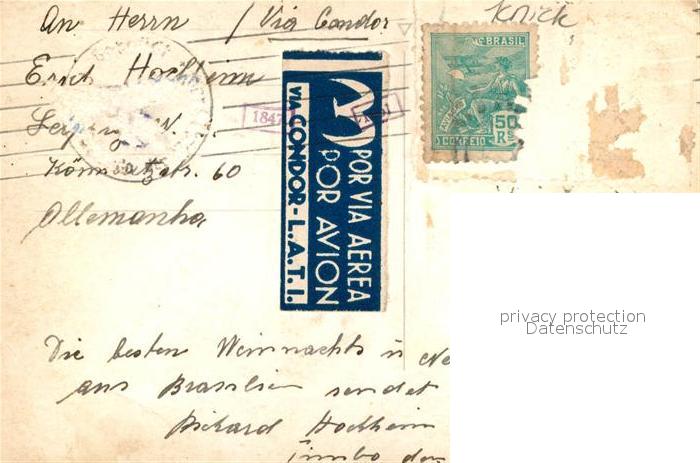 knick
An Herrn / Via Condor
Erich Hochheim
Leipzig N.
Könneritzstr. 60
Allemanha
1847
POR VIA AEREA
POR AVION
VIA CONDOR - L.A.T.I.
BRASIL
50
RS
CORREIO
privacy protection
Datenschutz
Die besten Weinnachts u Ne
aus Brasilien sendet
Richard Hochheim
Timbo den